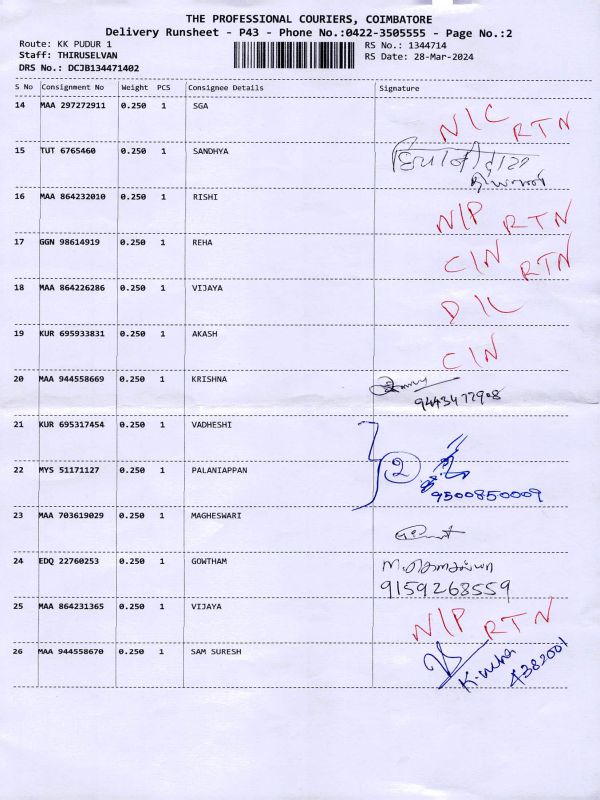 THE PROFESSIONAL COURIERS, COIMBATORE
Delivery Runsheet - P43 - Phone No.:0422-3505555 - Page No.:2
Route: KK PUDUR 1 RS No.: 1344714
Staff: THIRUSELVAN RS Date: 28-Mar-2024
DRS No.: DCJB134471402
S No Consignment No Weight PCS Consignee Details Signature
14 MAA 297272911 0.250 1 SGA N/C RTN
15 TUT 6765460 0.250 1 SANDHYA
16 MAA 864232010 0.250 1 RISHI N/P RTN
17 GGN 98614919 0.250 1 REHA C/N RTN
18 MAA 864226286 0.250 1 VIJAYA D/L
19 KUR 695933831 0.250 1 AKASH C/N
20 MAA 944558669 0.250 1 KRISHNA
9443477908
21 KUR 695317454 0.250 1 VADHESHI
22 MYS 51171127 0.250 1 PALANIAPPAN 2
9500850009
23 MAA 703619029 0.250 1 MAGHESWARI
24 EDQ 22760253 0.250 1 GOWTHAM
9159268559
25 MAA 864231365 0.250 1 VIJAYA N/P RTN
26 MAA 944558670 0.250 1 SAM SURESH
4382001